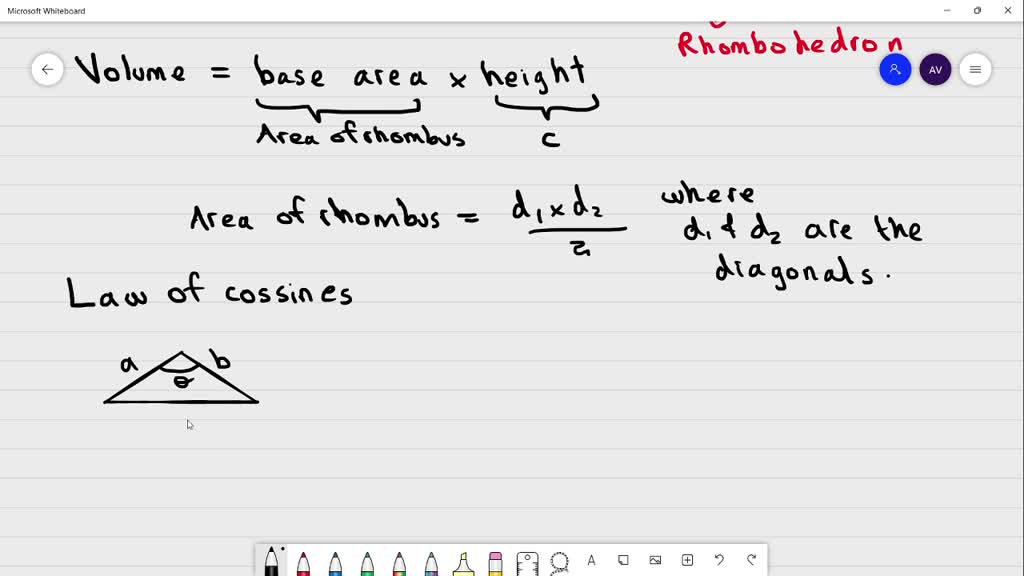 Microsoft Whiteboard
Rhombohedron
Volume = base area x height
AV
Area of rhombus c
Area of rhombus = d1 x d2 / 2 where
d1 & d2 are the
diagonals.
Law of cossines
a b
θ
A